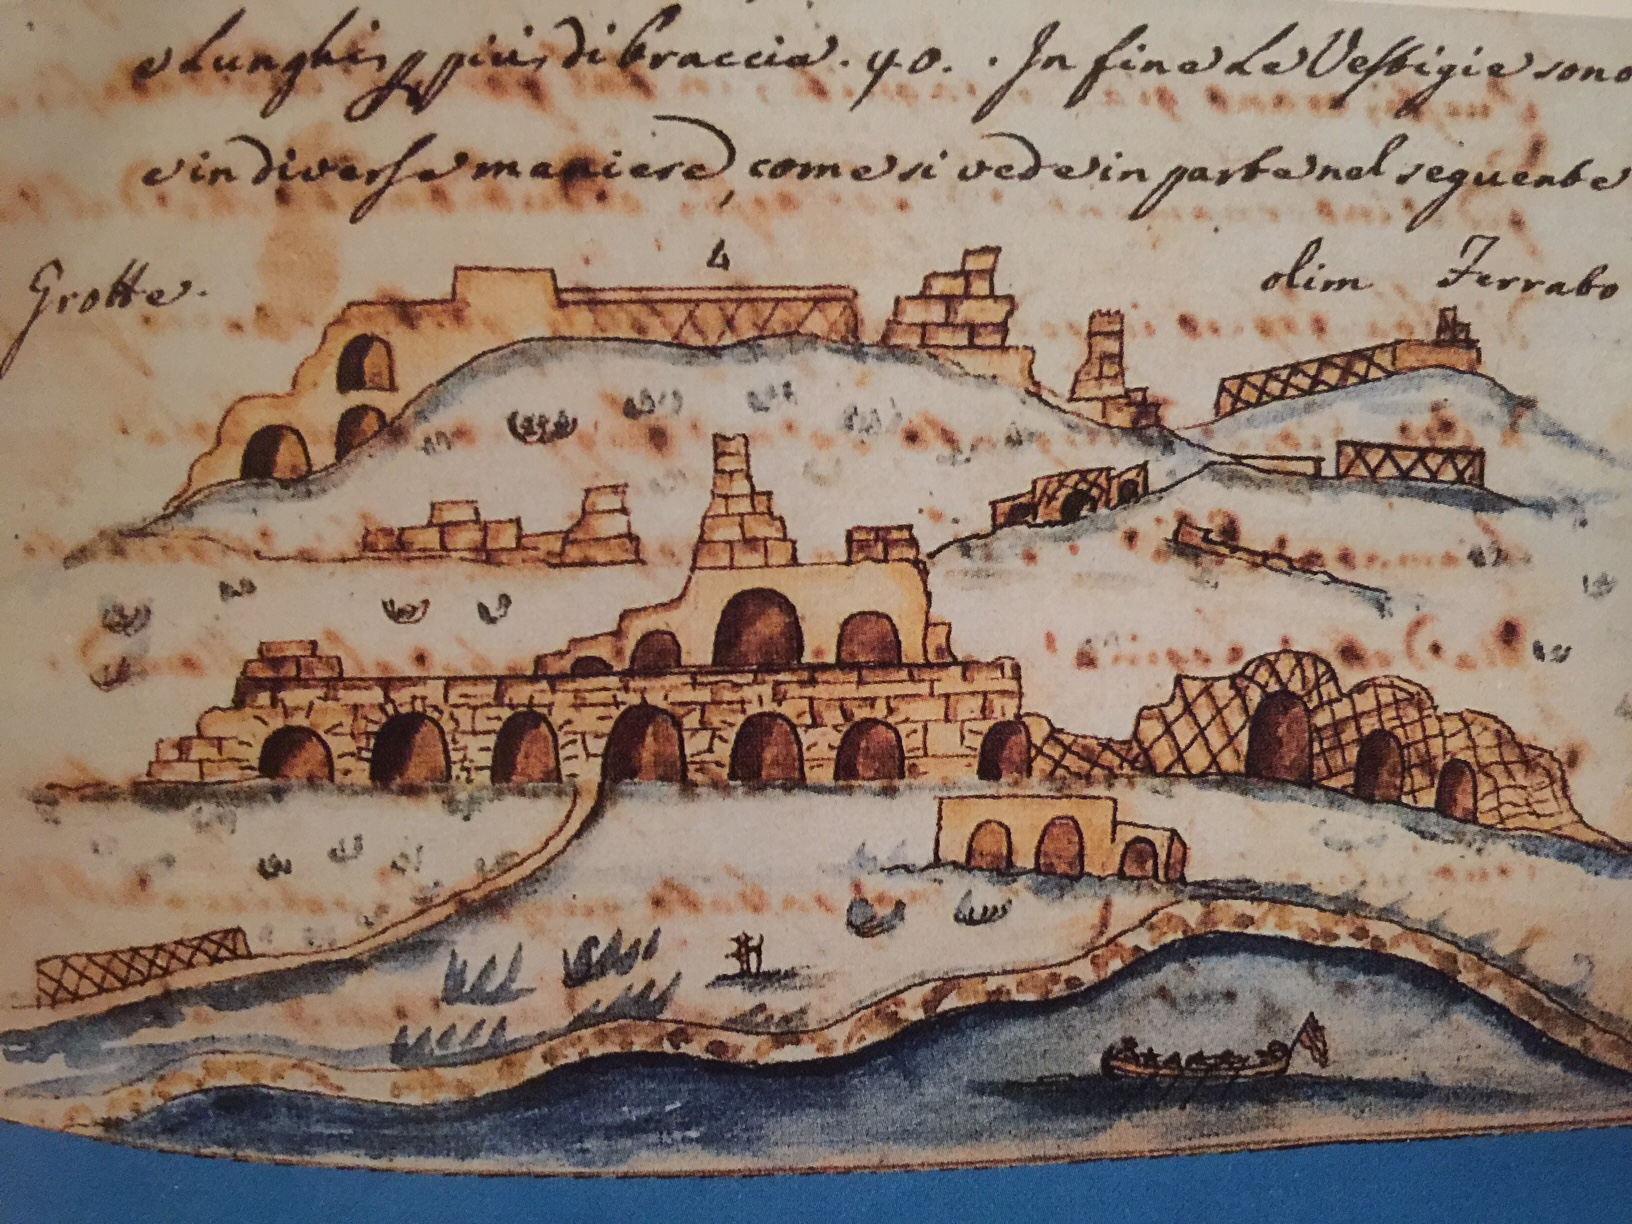 e lunghi più di braccia. 40. . In fine le Vestigie sono
e in diverse maniere, come si vede in parte nel seguente
4
Grotte.
olim Ferrabo